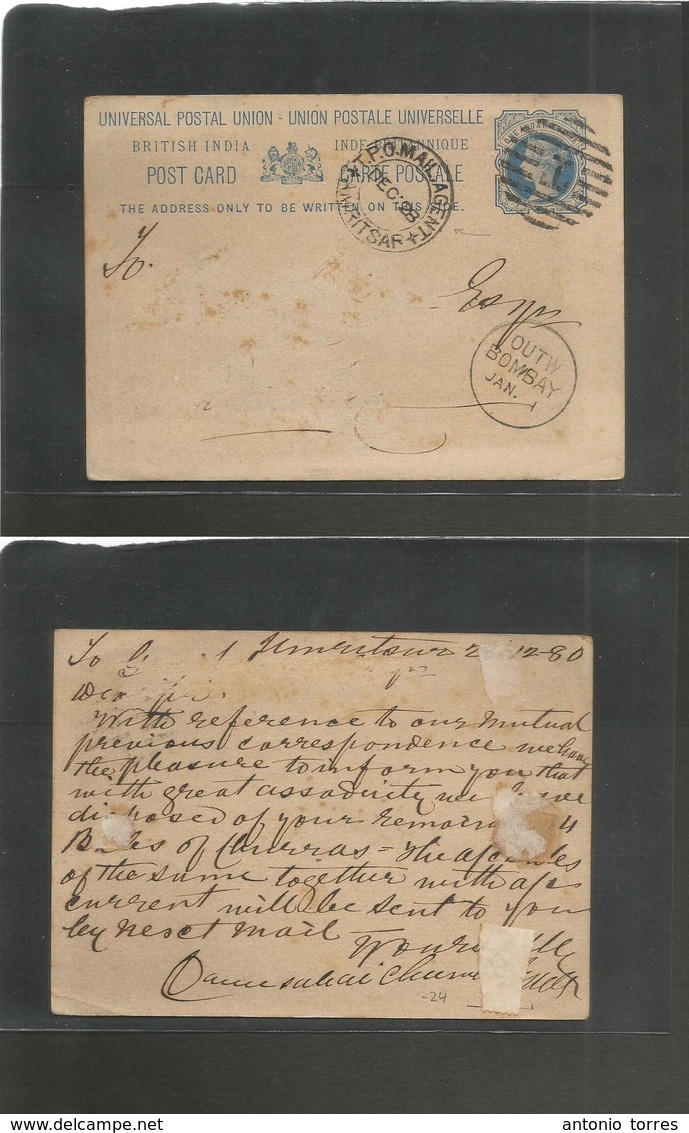 UNIVERSAL POSTAL UNION - UNION POSTALE UNIVERSELLE
BRITISH INDIA INDE
POST CARD CARTE POSTALE
THE ADDRESS ONLY TO BE WRITTEN ON THIS
T.P.O. MAIL AGENT
DEC 28
To.
OUTW
BOMBAY
JAN. 1
To Umritsur 12-80
With reference to our mutual
previous correspondence we have
the pleasure to inform you that
with great assoduity we have
disposed of your 4
Bales of Churras = The A/c Sales
of the same together with a/c
current will be sent to you
by next Mail
-24
delcampe.net
antonio torres